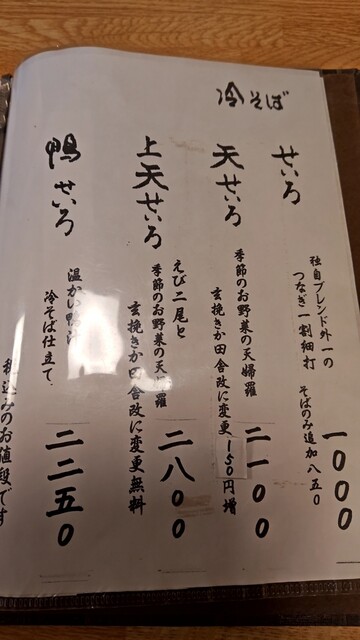 冷そば
せいろ
独自ブレンド外一の
つなぎ一割細打 そばのみ追加八五0
一000
天せいろ
季節のお野菜の天婦羅
玄挽きか田舎改に変更150円増
二一00
上天せいろ
えび二尾と
季節のお野菜の天婦羅
玄挽きか田舎改に変更無料
二八00
鴨せいろ
温かい鴨汁
冷そば仕立て、
二二五0
税込みのお値段です